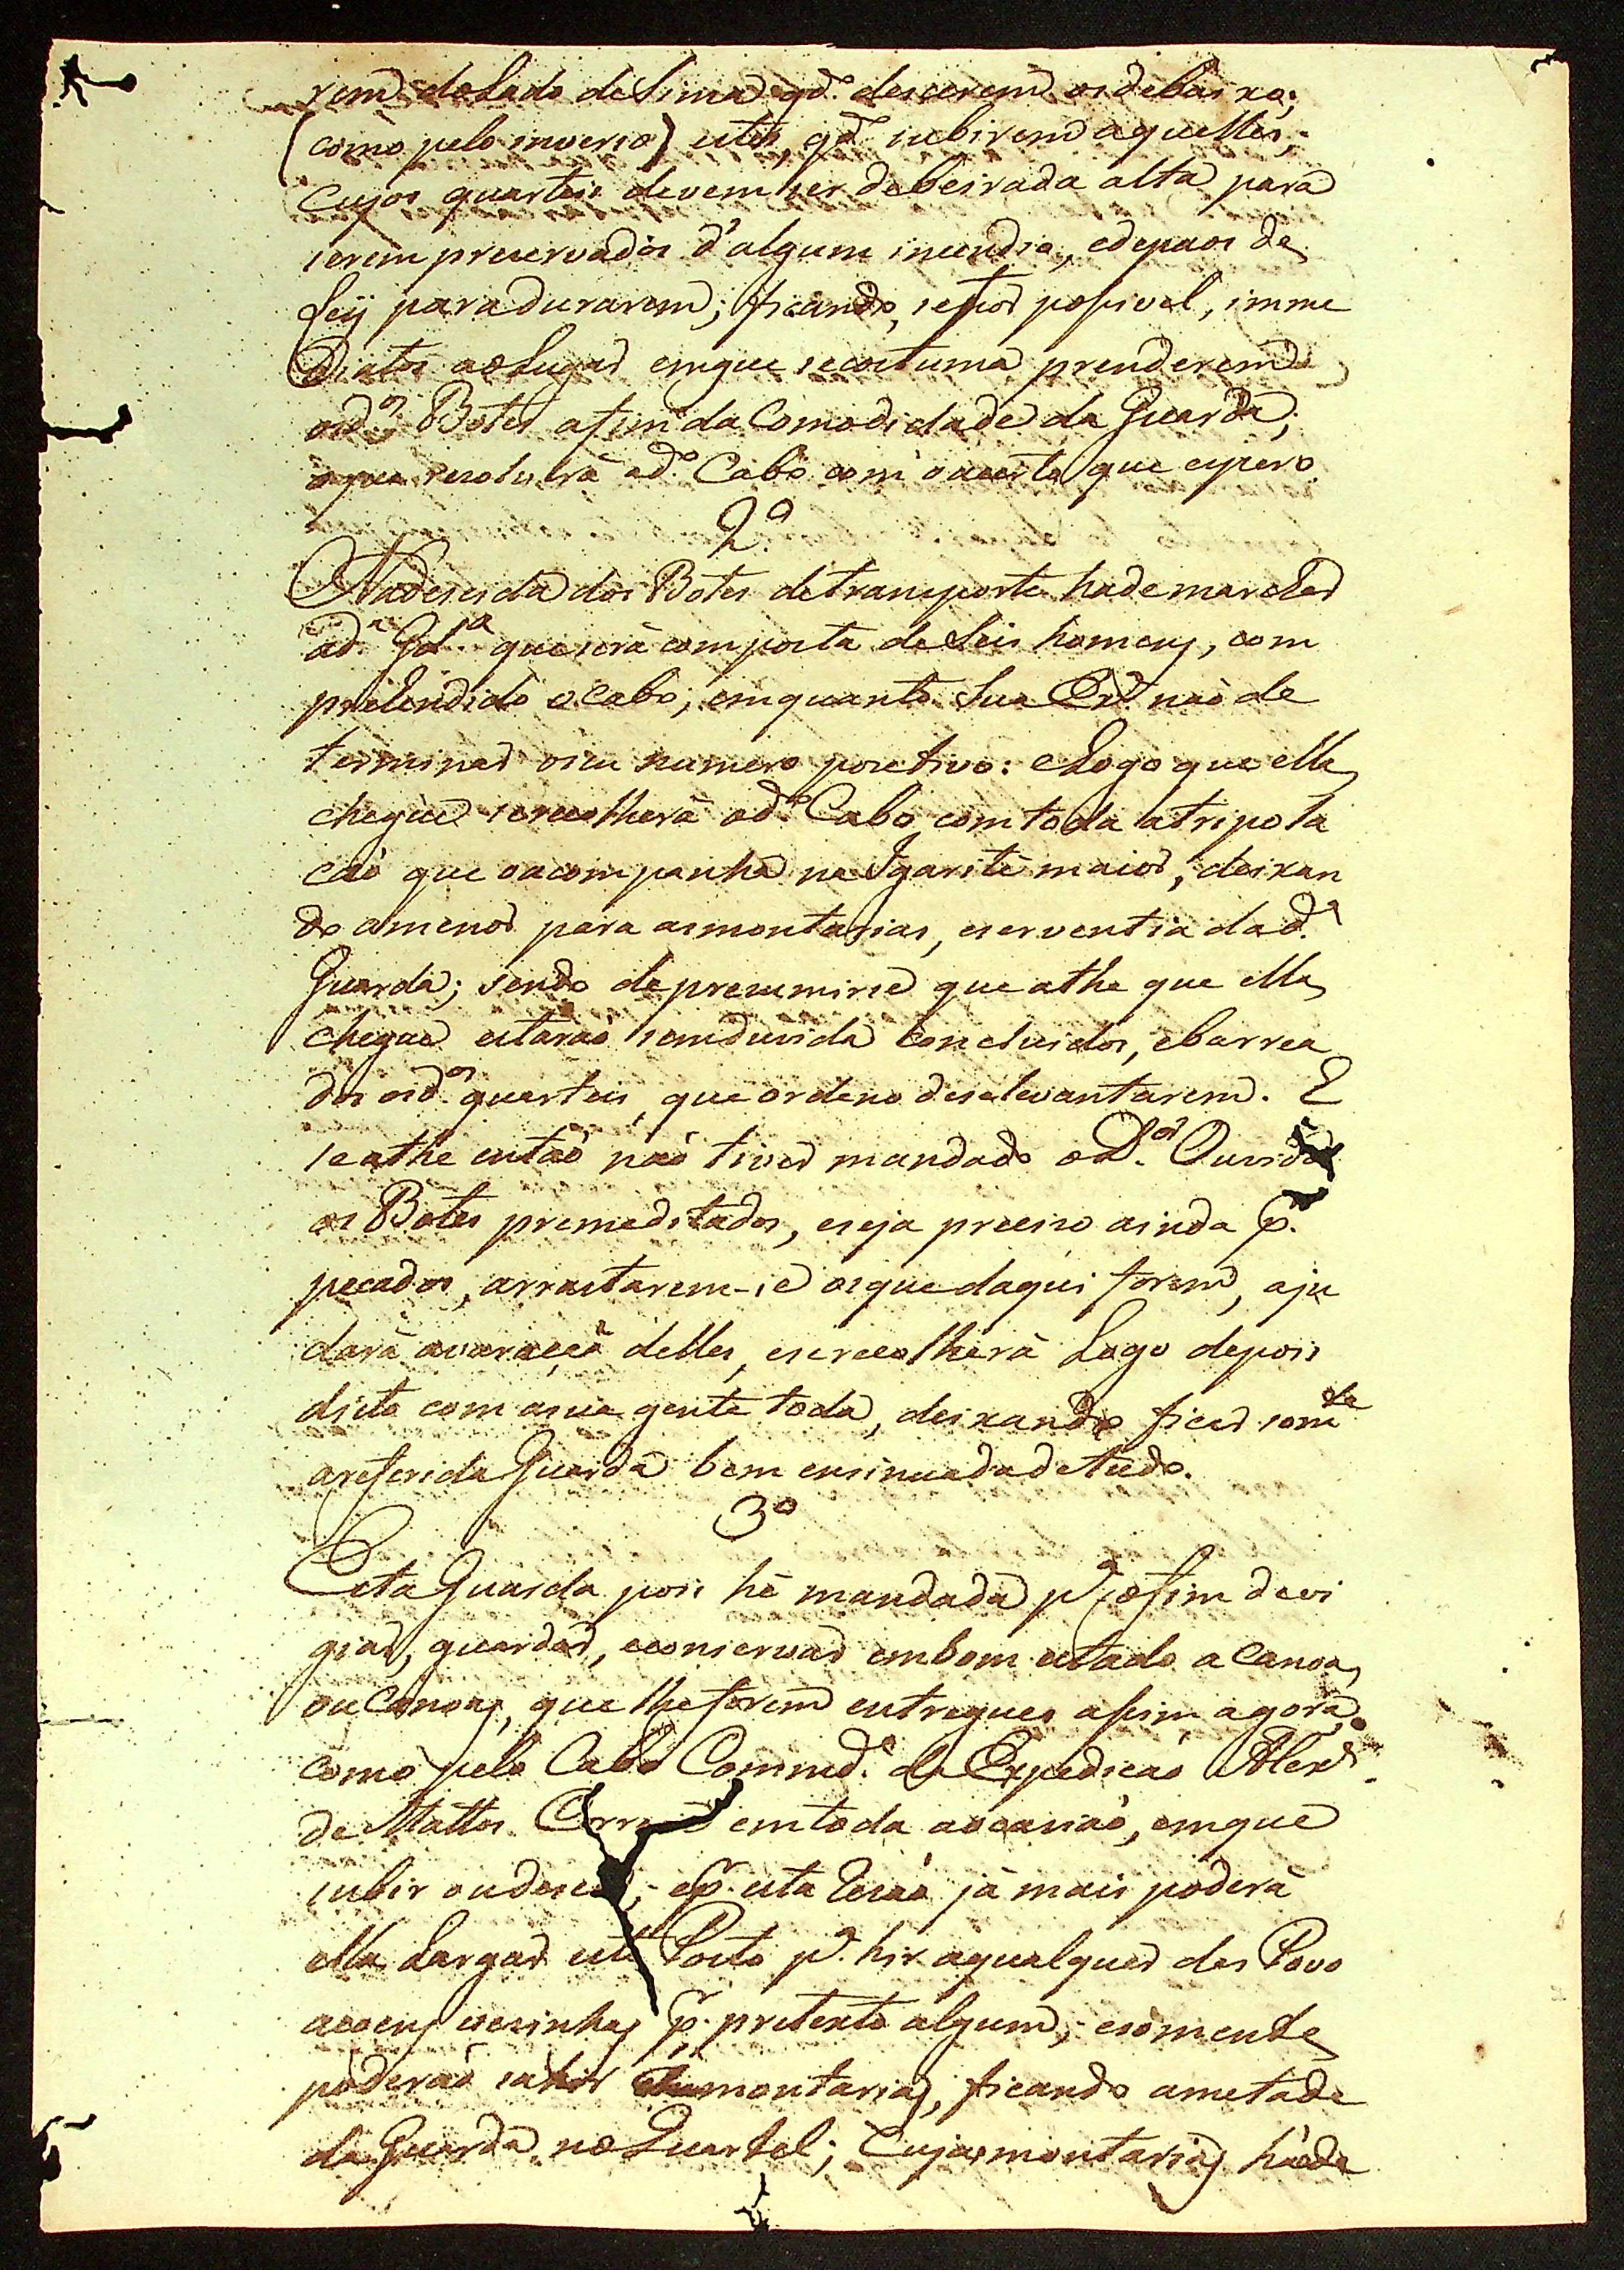 rem do Lado de Sima qd.º descerem os debaixo;
(como pelo inverso) estes, qd.º subirem aquelles;
Cujos quarteis devem ser debeirada alta para
serem preservados d'algum incendio, edepaos de
Ley para durarem; ficando, sefor possivel, imme
Diatos aoLugar emque secostuma prenderem
osd.ºs Botes afim da Comodidade da Guarda;
oque resolverá od.º Cabo com oacerto que espero.
2.º
Nadescida dos Botes detransporte hade marchar
ad.ª Gd.ª queserá composta de Seis homens, com
prehendido oCabo; emquanto Sua Ex.ª naõ de
terminar oseu numero posetivo: eLogo que ella
chegue serecolherá od.º Cabo comtoda atripola
caõ que oacompanha na Igarité maior, deixan
do amenor para asmontarias, eserventia dad.ª
Guarda; sendo depresumirse que athe que ella
chegue estaraõ semduvida concluidos, ebarrea
dos osd.ºs quarteis, que ordeno deselevantarem. E
seathe entaõ naõ tiver mandado oD.ºr Ouvidor
os Botes premeditados, eseja preciso ainda p.
pecados, arrastarem-se osque daqui forem, aju
dará avaraçaõ delles, eserecolherá Logo depois
disto com asua gente toda, deixando ficar som.te
areferida Guarda bem ensinuada detudo.
3º
Esta Guarda pois hé mandada p.ª ofim devi
giar, guardar, econservar embom estado a Canoa,
ou Canoas, que lhe forem entregues assim agora,
como pelo Cabo Commd.e da Expedicaõ Alex.e
de Mattos Corr.ª emtoda aocasiaõ, emque
subir oudescer; ep. esta rasaõ já mais poderá
ella Largar este Porto p.ª hir aqualquer das Povo
acoens vesinhas p. pretexto algum; esómente
poderaõ sahir ásmontarias, ficando ametade
da Guarda no Quartel; Cujas montarias háde